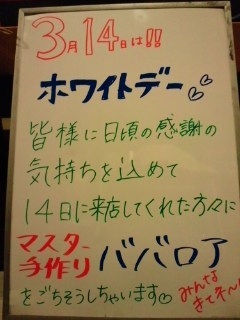 3月14日は!!
ホワイトデー♡♡
皆様に日頃の感謝の
気持ちを込めて
14日に来店してくれた方々に
マスター手作り ババロア
をごちそうしちゃいます♡
みんなきてネ〜!